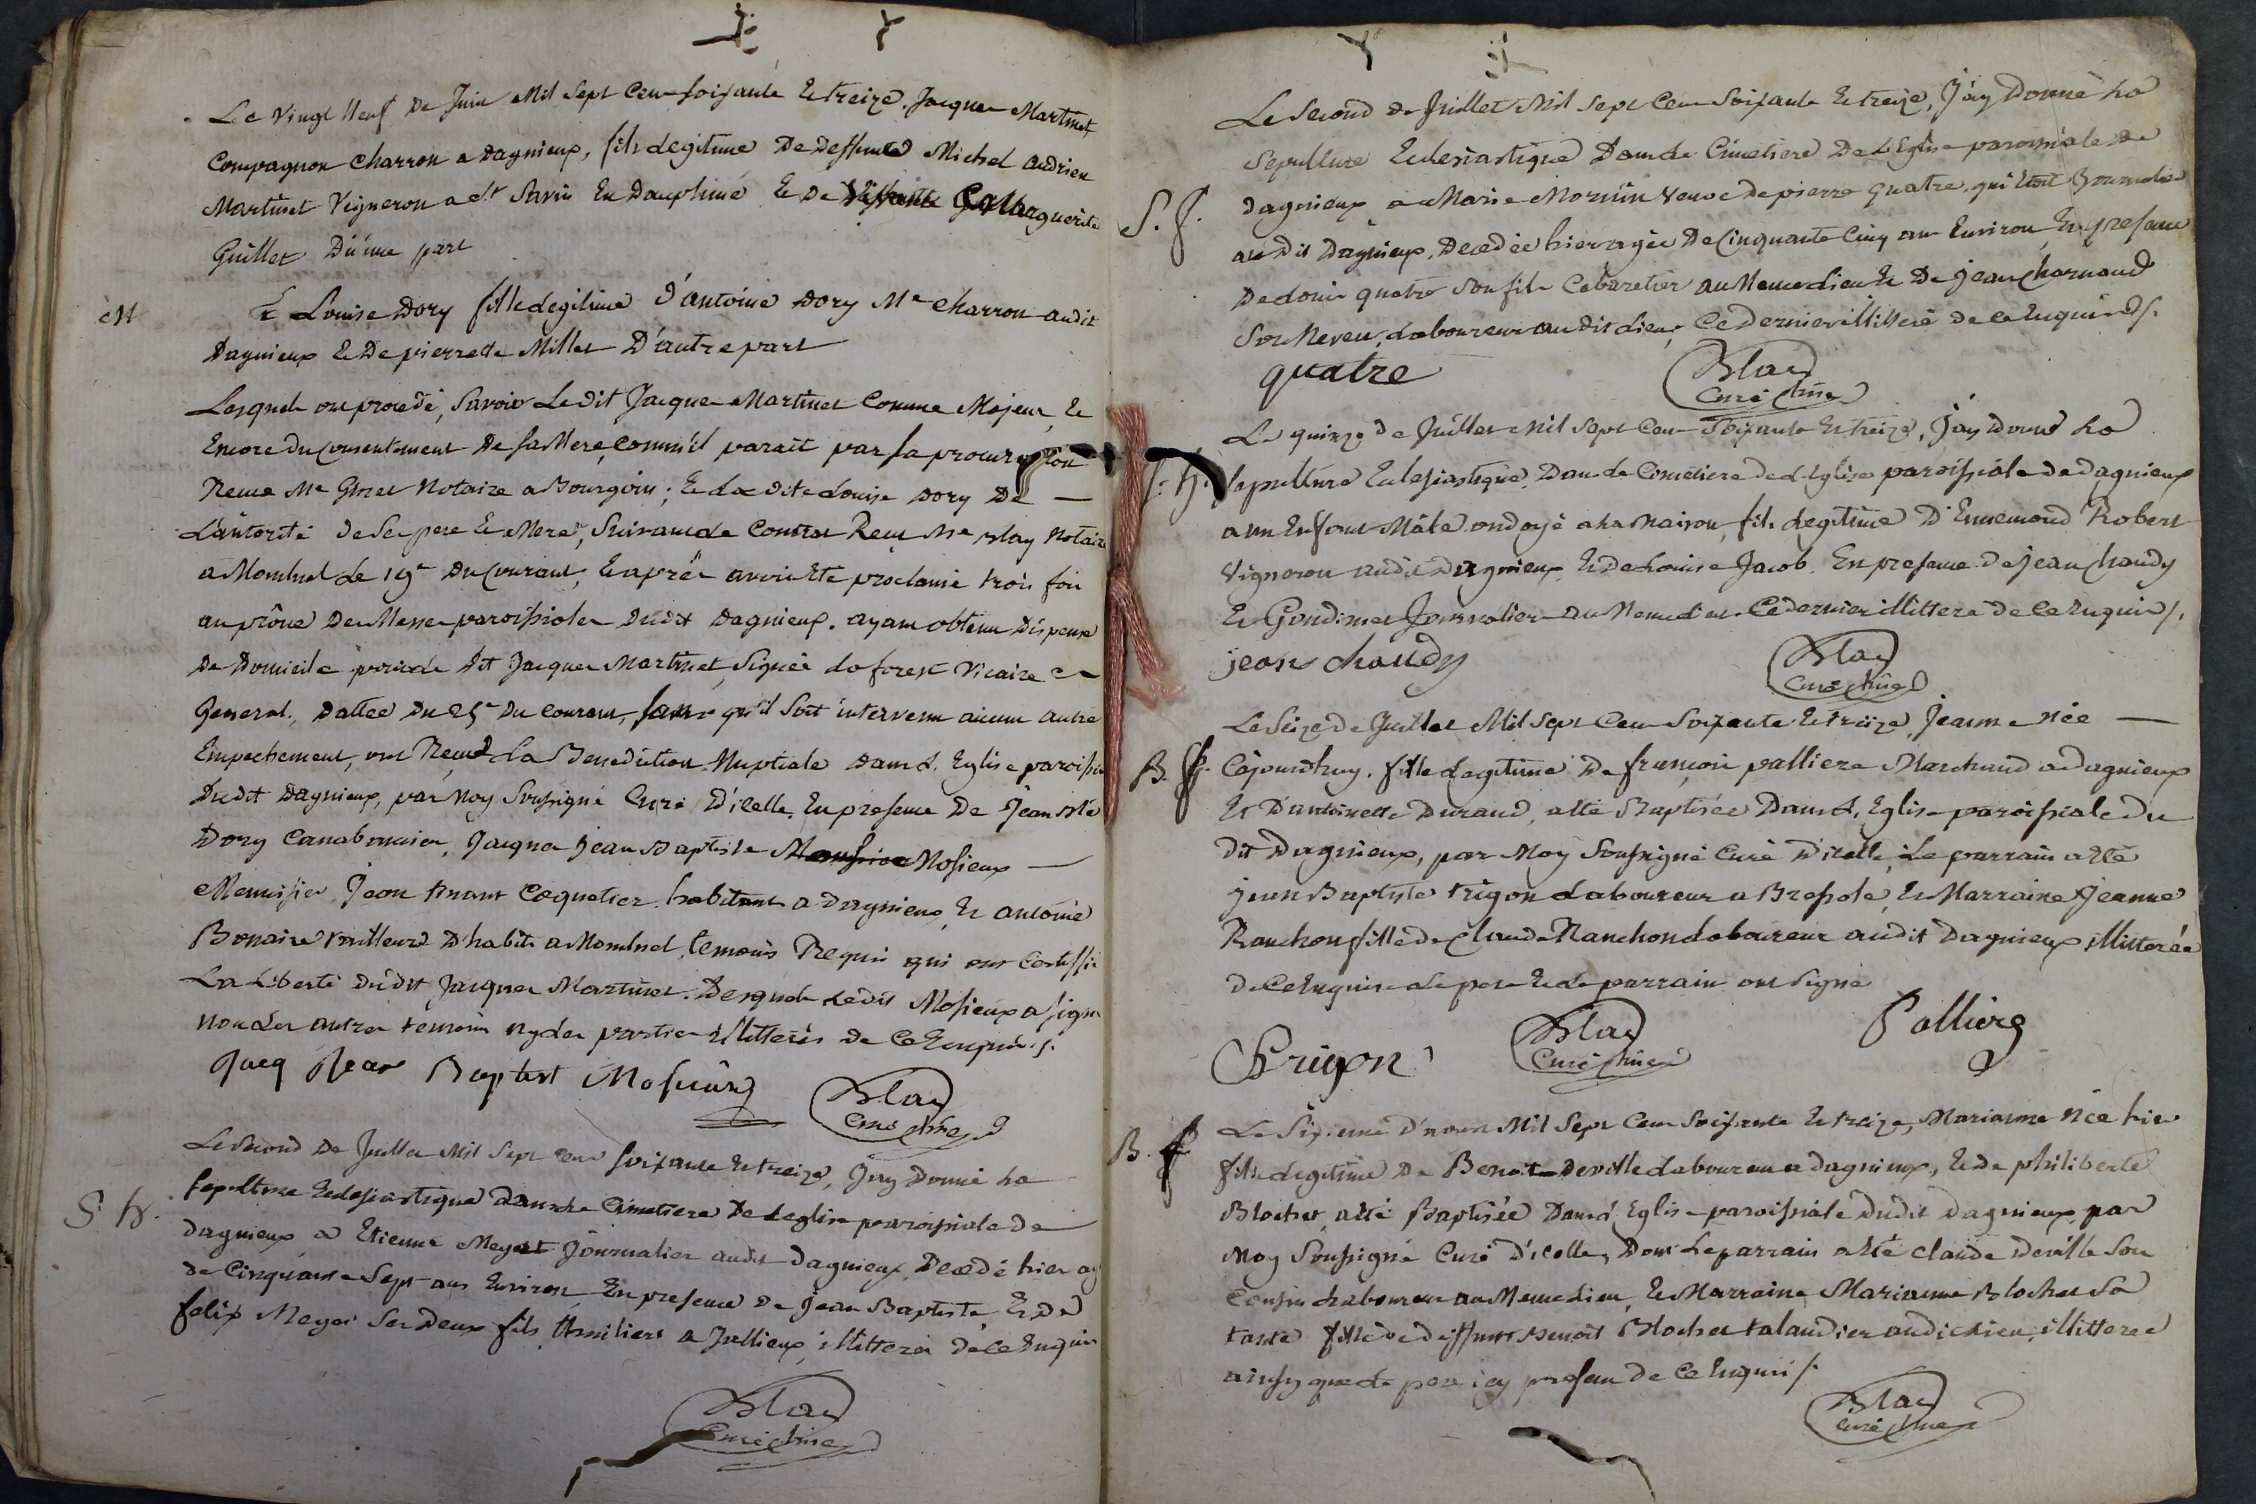 Le vingt Neuf De Juin Mil Sept Cent soixante Et treize, Jacques Martinet
Compagnon Charron a Dagnieux, fils legitime De Deffunct Michel andrieu
Martinet Vigneron a St Savin En Dauphiné Et De Marguerite
Guillet D'une part
M
Et Louise Dory fille legitime d'antoine Dory Me Charron audit
Dagnieux Et De pierrette Millet D'autre part
Lesquels ont procedé, Savoir Le dit Jacques Martinet Comme Majeur, Et
Encore du Consentement De sa Mere, comm'il parait par sa procuration
Recue Me Notaire a Bourgoin; Et La dite Louise Dory De
L'autorité De Ses pere Et Mere, Suivant le Contrat Reçu Me Blay Notaire
a Montluel Le 19e Du Courant, Et aprés avoir Eté proclamé trois fois
au prône Des Messes paroissiales Dudit Dagnieux. ayant obtenu Dispense
De Domicile pour le Dit Jacques Martinet, Signée Laforest Vicaire
General, Dattée Du 25e Du Courant, sans qu'il Soit intervenu aucun autre
Empechement, ont Reçu La Benediction Nuptiale Dans L'Eglise paroissia
Dudit Dagnieux, par Moy Soussigné Curé D'icelle, En presence De Jean
Dory Canabassier, Jacques Jean Baptiste Mosieux
Menuisier, Jean Coquetier habitants a Dagnieux, Et antoine
Bonaire tailleur D'habits a Montluel, temoins Requis qui ont Certiffié
La Liberté Dudit Jacques Martinet. Desquels Ledit Mosieux a signé
non Les autres témoins ny les parties illitterés De Ce Enquis ./.
Jacq Jean Baptist Mosieux
Blay
Curé
S. h.
Le Second De Juillet Mil Sept Cent soixante Et treize, J'ay Donné La
sepulture Eclesiastique Dans Le Cimetiere De L'eglise paroissiale De
Dagnieux a Etienne Meyet Journalier audit Dagnieux, Decedé hier agé
de Cinquante Sept ans Environ En presence De Jean Baptiste, Et De
felix Meyet Ses Deux fils a illitterés De Ce Enquis
Blay
Curé
Le Second De Juillet Mil Sept Cent Soixante Et treize, J'ay Donné La
Sepulture Eclesiastique Dans Le Cimetiere De L'Eglise paroissiale De
S. f.
Dagnieux a Marie veuve De pierre quatre, qui Etoit Grommelier
au Dit Dagnieux, Decedée hier agée De Cinquante Cinq ans Environ, En presence
De Louis quatre Son fils Cabaretier au Meme Lieu Et De Jean Charnaud
Son Neveu, Laboureur au Dit Lieu, Ce Dernier illitteré de ce Enquis ./.
quatre
Blay
Curé
Le quinze De Juillet Mil Sept Cent Soixante Et treize, J'ay Donné La
S. h.
sepulture Eclesiastique, Dans Le Cimetiere De L'Eglise paroissiale de Dagnieux
a un Enfant Mâle ondoyé a La Maison, fils Legitime D'Ennemond Robert
Vigneron audit Dagnieux, Et De Louise Jacob. En presence de Jean Chaudy
Et Gondinet Journaliers au Meme Lieu Ce dernier illitteré de Ce Enquis ./.
jean chaudy
Blay
Curé
Le Seize De Juillet Mil Sept Cent Soixante Et treize, Jeanne née
B. f.
Cejourd'huy, fille Legitime De françois palliere Marchand a Dagnieux
Et D'antoinette Durand, a Eté Baptisée Dans L'Eglise paroissiale Du
dit Dagnieux, par Moy Soussigné Curé D'icelle, Le parrain a Eté
jean Baptiste trigon Laboureur a Bressole, Et Marraine Jeanne
Ranchon fille De Claude Ranchon Laboureur audit Dagnieux, illitterée
De Ce Enquise Le pere Et Le parrain ont Signé
Palliere
Trigon
Blay
Curé
B. f.
Le Sixieme D'aoust Mil Sept Cent Soixante Et treize, Marianne née hier
fille Legitime De Benoit Deville Laboureur a Dagnieux, Et De philiberte
Blochet, a Eté Baptisée Dans L'Eglise paroissiale Dudit Dagnieux, par
Moy Soussigné Curé D'icelle, Dont Le parrain a Eté Claude Deville Son
Cousin Laboureur au Meme Lieu, Et Marraine Marianne Blochet Sa
tante fille De Deffunt Benoit Blochet talandier audit Lieu, illitteree
ainsy que Le pere icy present De Ce Enquis ./.
Blay
Curé